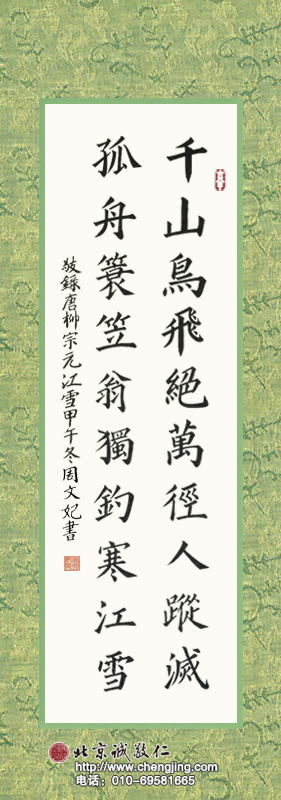 千山鳥飛絕萬徑人蹤滅
孤舟簑笠翁獨釣寒江雪
敬錄唐柳宗元江雪甲午冬周文妃書
北京诚敬仁
http://www.chengjing.com
电话：010-69581665